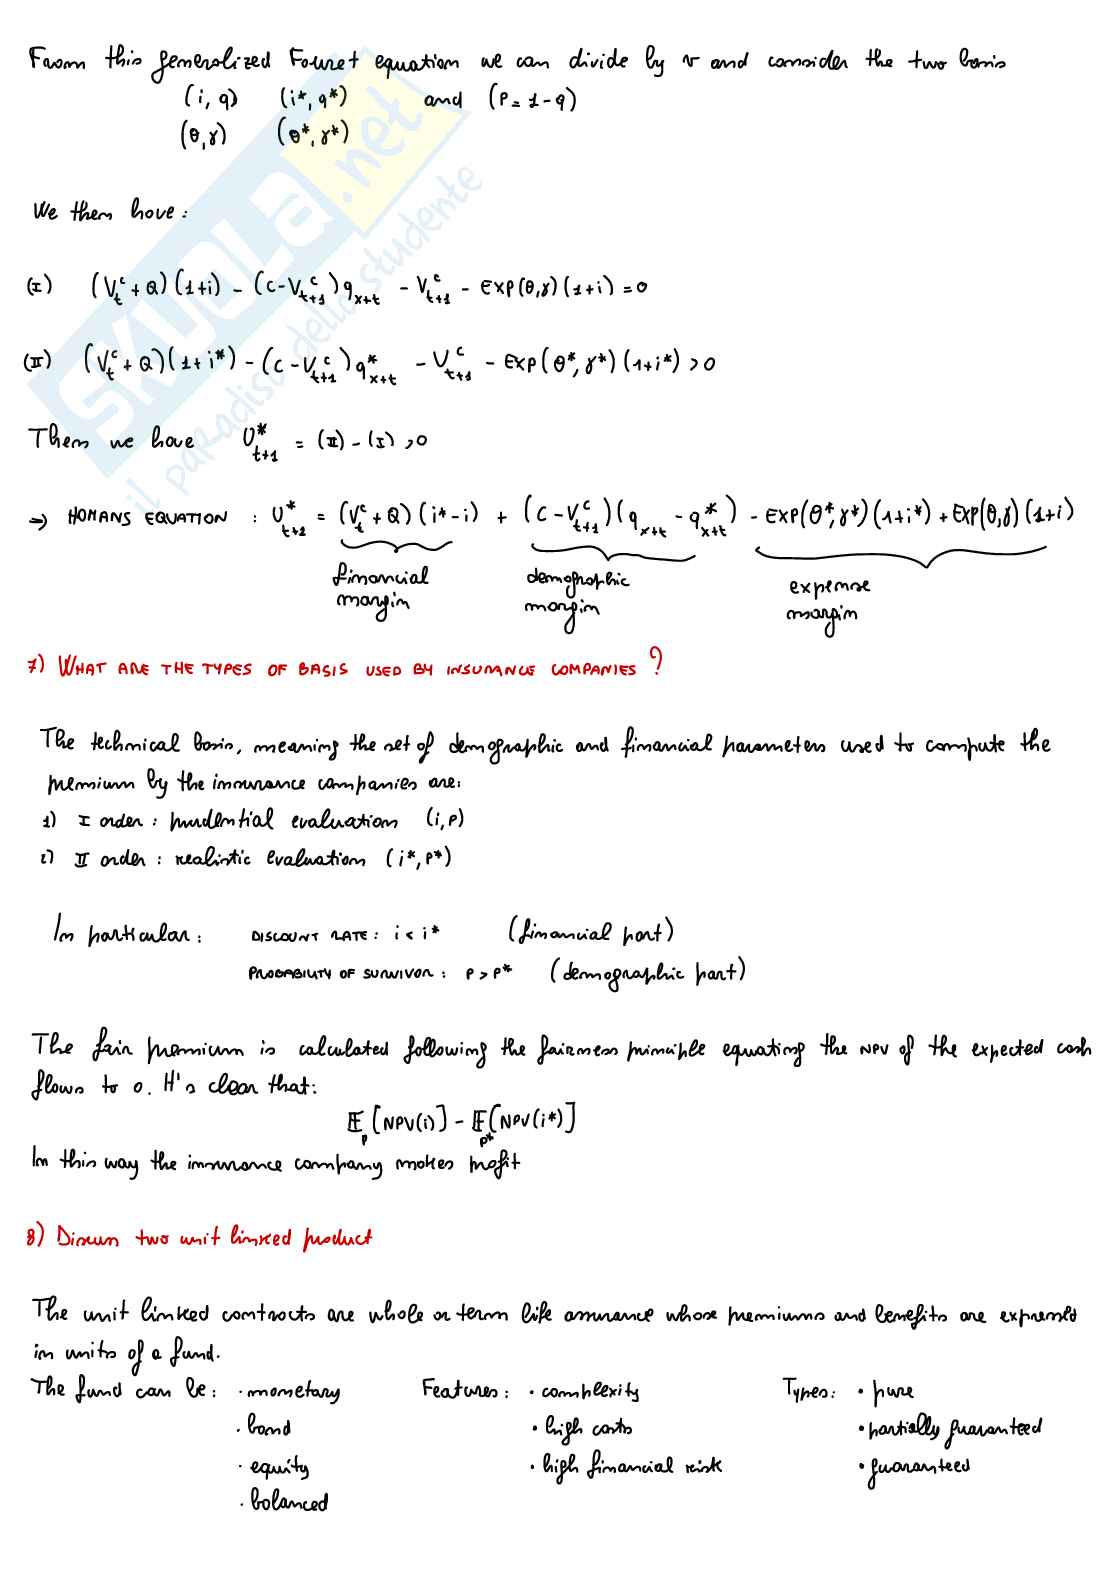 From this generalized Fouret equation we can divide by v and consider the two basis
(i, q) (i*, q*) and (P = 1 - q)
(θ, γ) (θ*, γ*)
We then have:
(I) (V_t^c + Q)(1+i) - (C - V_{t+1}^c) q_{x+t} - V_{t+1}^c - EXP(θ,γ)(1+i) = 0
(II) (V_t^c + Q)(1+i*) - (C - V_{t+1}^c) q*_{x+t} - V_{t+1}^c - EXP(θ*, γ*)(1+i*) > 0
Then we have U*_{t+1} = (II) - (I) > 0
⇒ HOMANS EQUATION : U*_{t+1} = (V_t^c + Q)(i* - i) + (C - V_{t+1}^c)(q_{x+t} - q*_{x+t}) - EXP(θ*, γ*)(1+i*) + EXP(θ,γ)(1+i)
financial margin
demographic margin
expense margin
7) WHAT ARE THE TYPES OF BASIS USED BY INSURANCE COMPANIES ?
The technical basis, meaning the set of demographic and financial parameters used to compute the
premium by the insurance companies are:
1) I order : prudential evaluation (i, P)
2) II order : realistic evaluation (i*, P*)
In particular: DISCOUNT RATE : i < i* (financial part)
PROBABILITY OF SURVIVOR : P > P* (demographic part)
The fair premium is calculated following the fairness principle equating the NPV of the expected cash
flows to 0. It's clear that:
E_P [NPV(i)] - E_{P*} [NPV(i*)]
In this way the insurance company makes profit
8) Discuss two unit linked product
The unit linked contracts are whole or term life assurance whose premiums and benefits are expressed
in units of a fund.
The fund can be: · monetary Features: · complexity Types: · pure
· bond · high costs · partially guaranteed
· equity · high financial risk · guaranteed
· balanced
SKUOLA.net
il paradiso dello studente